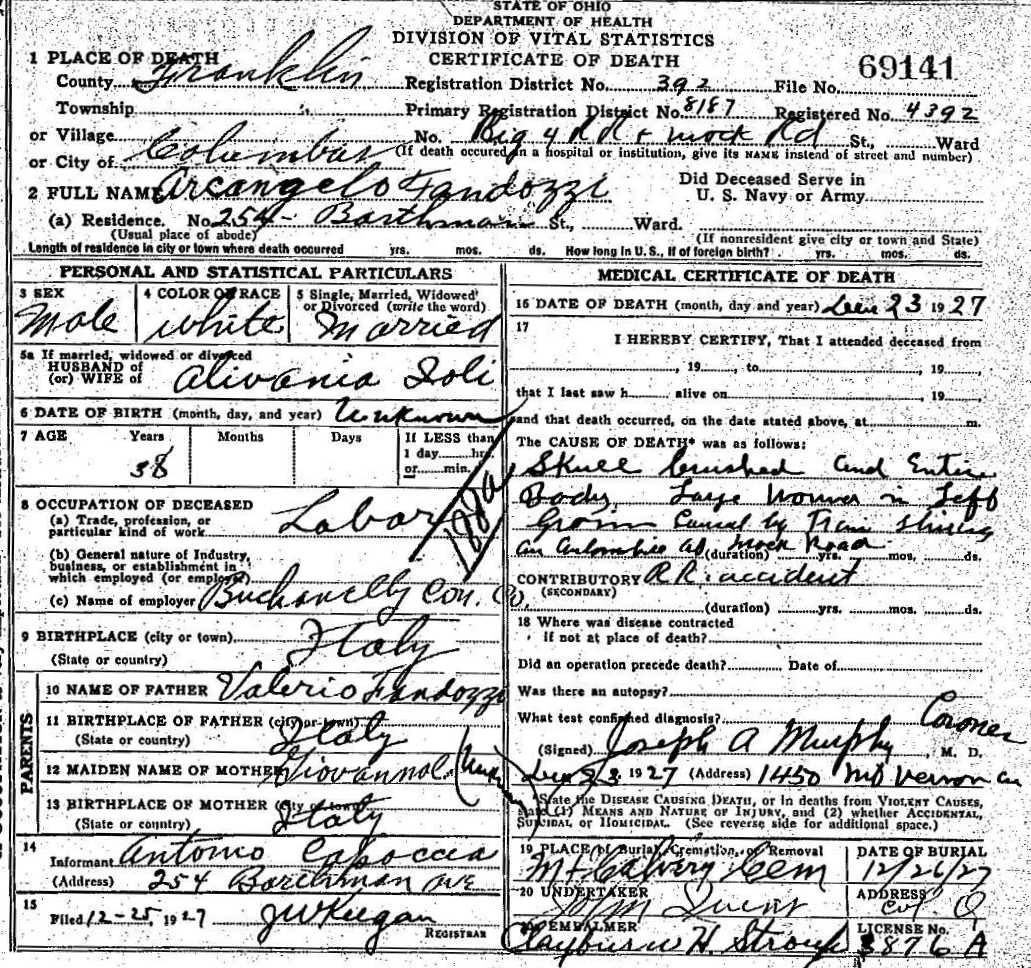 STATE OF OHIO
DEPARTMENT OF HEALTH
DIVISION OF VITAL STATISTICS
CERTIFICATE OF DEATH
69141
1 PLACE OF DEATH
County Franklin Registration District No. 392 File No.
Township Primary Registration District No. 8187 Registered No. 4392
or Village No. Big 4 RR + Mock Rd St., Ward
or City of Columbus (If death occured in a hospital or institution, give its NAME instead of street and number)
2 FULL NAME Arcangelo Fandozzi Did Deceased Serve in U. S. Navy or Army
(a) Residence. No. 254 Barthman St., Ward.
(Usual place of abode) (If nonresident give city or town and State)
Length of residence in city or town where death occurred yrs. mos. ds. How long in U. S., if of foreign birth? yrs. mos. ds.
PERSONAL AND STATISTICAL PARTICULARS
3 SEX Male
4 COLOR OR RACE White
5 Single, Married, Widowed or Divorced (write the word) Married
5a If married, widowed or divorced
HUSBAND of
(or) WIFE of Alivania Ioli
6 DATE OF BIRTH (month, day, and year) Unknown
7 AGE Years Months Days If LESS than
1 day hrs.
or min.
38
188a
8 OCCUPATION OF DECEASED
(a) Trade, profession, or
particular kind of work Labor
(b) General nature of Industry,
business, or establishment in
which employed (or employer)
(c) Name of employer Con. Co.
9 BIRTHPLACE (city or town)
(State or country) Italy
PARENTS
10 NAME OF FATHER Valerio Fandozzi
11 BIRTHPLACE OF FATHER (city or town)
(State or country) Italy
12 MAIDEN NAME OF MOTHER
13 BIRTHPLACE OF MOTHER (city or town)
(State or country) Italy
14
Informant Antonio Capoccia
(Address) 254 Barthman Ave
15
Filed 12-25, 1927 J W Keegan
REGISTRAR
MEDICAL CERTIFICATE OF DEATH
16 DATE OF DEATH (month, day and year) Dec 23 1927
17
I HEREBY CERTIFY, That I attended deceased from
, 19 , to , 19 ,
that I last saw h alive on , 19 ,
and that death occurred, on the date stated above, at m.
The CAUSE OF DEATH* was as follows:
Skull Crushed and Entire
Body Large Wound in Left
Groin Caused by Train striking
an at Mock Road
(duration) yrs. mos. ds.
CONTRIBUTORY RR. accident
(SECONDARY)
(duration) yrs. mos. ds.
18 Where was disease contracted
if not at place of death?
Did an operation precede death? Date of
Was there an autopsy?
What test confirmed diagnosis? Coroner
(Signed) Joseph A Murphy M. D.
Dec 23 1927 (Address) 1450 Mt Vernon Av
*State the DISEASE CAUSING DEATH, or in deaths from VIOLENT CAUSES,
state (1) MEANS AND NATURE OF INJURY, and (2) whether ACCIDENTAL,
SUICIDAL or HOMICIDAL. (See reverse side for additional space.)
19 PLACE of Burial, Cremation, or Removal DATE OF BURIAL
Mt Calvery Cem 12/26/27
20 UNDERTAKER ADDRESS
Col. O
EMBALMER LICENSE No.
H. 3876 A